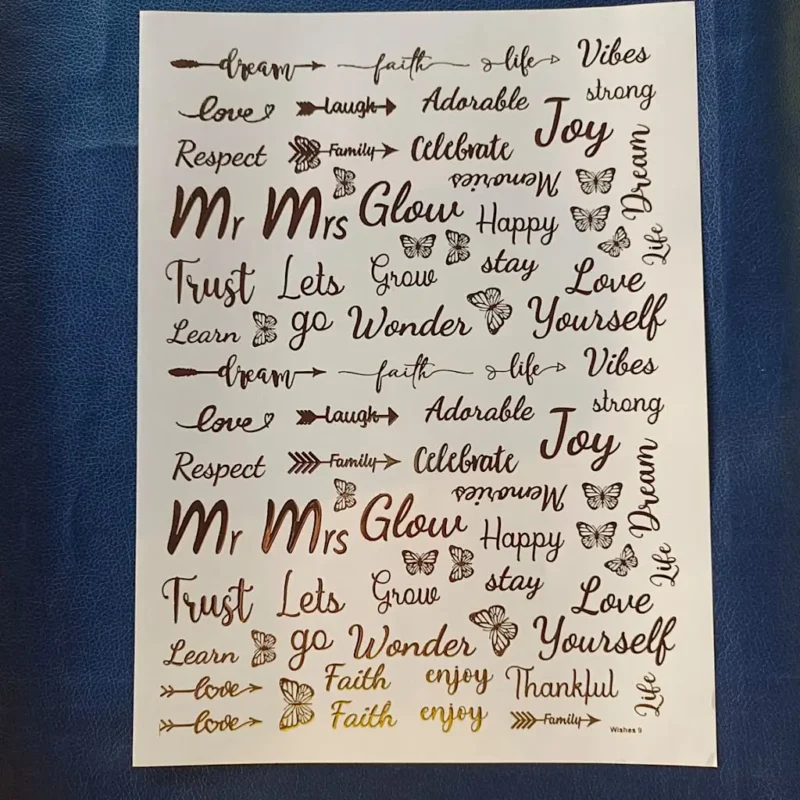 dream faith life Vibes
love laugh Adorable strong
Joy
Respect Family Celebrate
Memories Dream
Mr Mrs Glow Happy
Life
Trust Lets Grow stay Love
Learn go Wonder Yourself
dream faith life Vibes
love laugh Adorable strong
Joy
Respect Family Celebrate
Memories Dream
Mr Mrs Glow Happy
Life
Trust Lets Grow stay Love
Learn go Wonder Yourself
love Faith enjoy Thankful Life
love Faith enjoy Family
Wishes 9